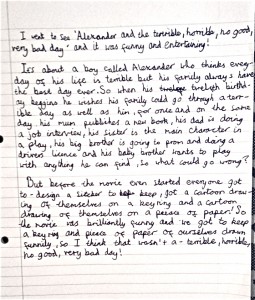 I went to see 'Alexander and the terrible, horrible, no good,
very bad day' and it was funny and entertaining!
It's about a boy called Alexander who thinks every-
day of his life is terrible but his family always have
the best day ever. So when his twelfth birth-
ay beggins he wishes his family could go through a terr-
ible day as well as him, for once and on the same
day his mum publishes a new book, his dad is doing
a job interview, his sister is the main character in
a play, his big brother is going to prom and doing a
drivers licence and his baby brother wants to play
with anything he can find. So what could go wrong?
But before the movie even started everyone got
to design a sticker to keep, got a cartoon draw-
ing of themselves on a keyring and a cartoon
drawing of themselves on a peiece of paper! So
the movie was brilliantly funny and we got to keep
a keyring and peiece of paper of ourselves drawn
funnily, so I think that wasn't a terrible, horrible,
no good, very bad day!